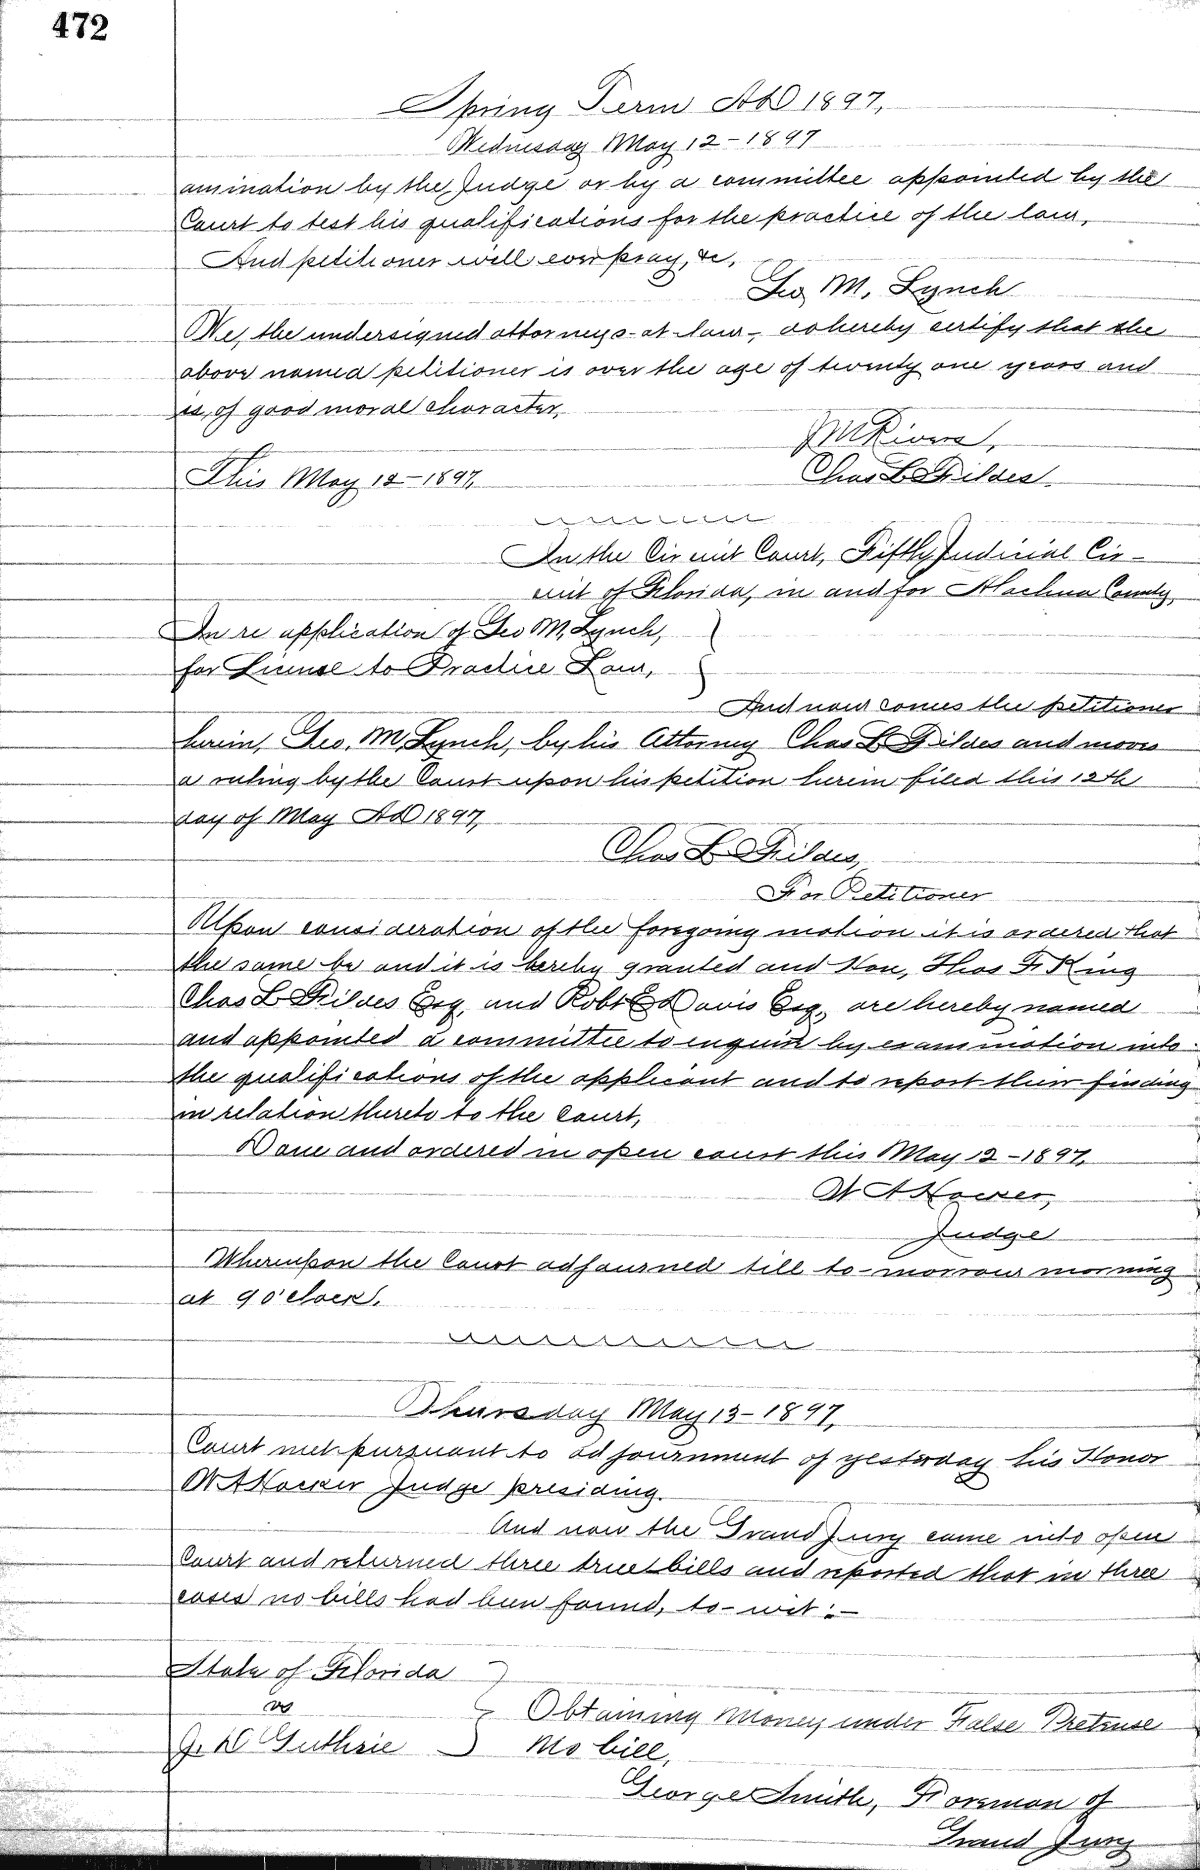 472
Spring Term AD 1897,
Wednesday May 12 - 1897
amination by the Judge or by a committee appointed by the
Court to test his qualifications for the practice of the law,
And petitioner will ever pray, &c,
Geo M, Lynch
We, the undersigned attorneys-at law-, do hereby certify that the
above named petitioner is over the age of twenty one years and
is, of good moral character,
JM Rivers,
This May 12-1897,
Chas L Fildes.
In the Circuit Court, Fifth Judicial Cir-
cuit of Florida, in and for Alachua County,
In re application of Geo M, Lynch,
for License to Practice Law,
And now comes the petitioner
herein, Geo, M, Lynch, by his Attorney Chas L Fildes and moves
a ruling by the Court upon his petition herein filed this 12th
day of May AD 1897,
Chas L Fildes,
For Petitioner
Upon consideration of the foregoing motion it is ordered that
the same be and it is hereby granted and Hon, Thos F King
Chas L Fildes Esq, and Robt E Davis Esq, are hereby named
and appointed a committee to enquire by examination into
the qualifications of the applicant and to report their finding
in relation thereto to the Court,
Done and ordered in open court this May 12-1897,
W A Hocker,
Judge
Whereupon the Court adjourned till to-morrow morning
at 9 o'clock.
Thursday May 13-1897,
Court met pursuant to adjournment of yesterday his Honor
W A Hocker Judge presiding.
And now the Grand Jury came into open
Court and returned three true bills and reported that in three
cases no bills had been found, to-wit:-
State of Florida
vs
Obtaining Money under False Pretense
J. D Guthrie
No bill,
George Smith, Foreman of
Grand Jury